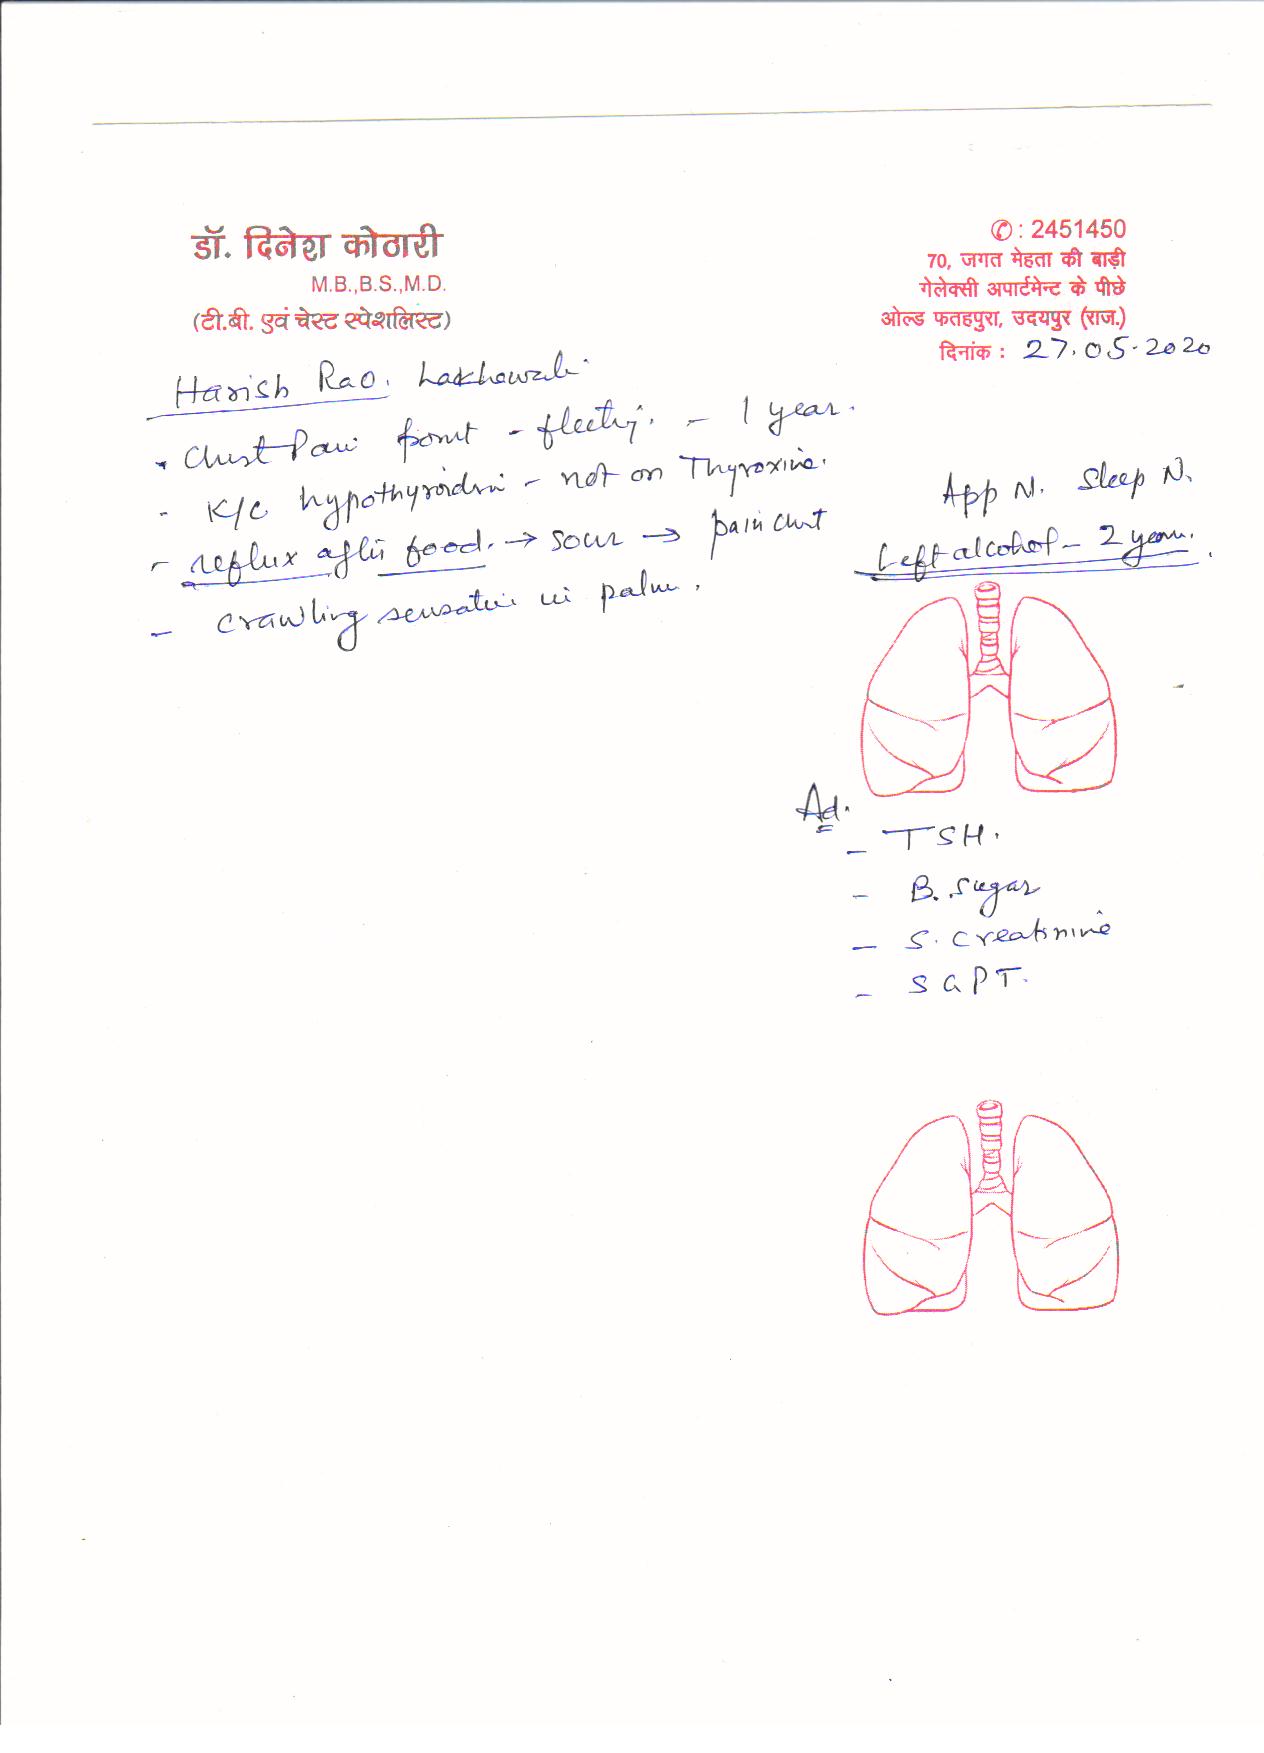 डॉ. दिनेश कोठारी
M.B.,B.S.,M.D.
(टी.बी. एवं चेस्ट स्पेशलिस्ट)
✆ : 2451450
70, जगत मेहता की बाड़ी
गेलेक्सी अपार्टमेन्ट के पीछे
ओल्ड फतहपुरा, उदयपुर (राज.)
दिनांक : 27.05.2020
Harish Rao. Lakhawali
- Chest Pain front - fleeting. - 1 year.
- K/C hypothyroidism - not on Thyroxine.
- reflux after food. → sour → pain chest
- crawling sensation in palm.
App N. Sleep N.
Left alcohol - 2 years.
Ad.
- TSH.
- B. Sugar
- S. Creatinine
- SGPT.